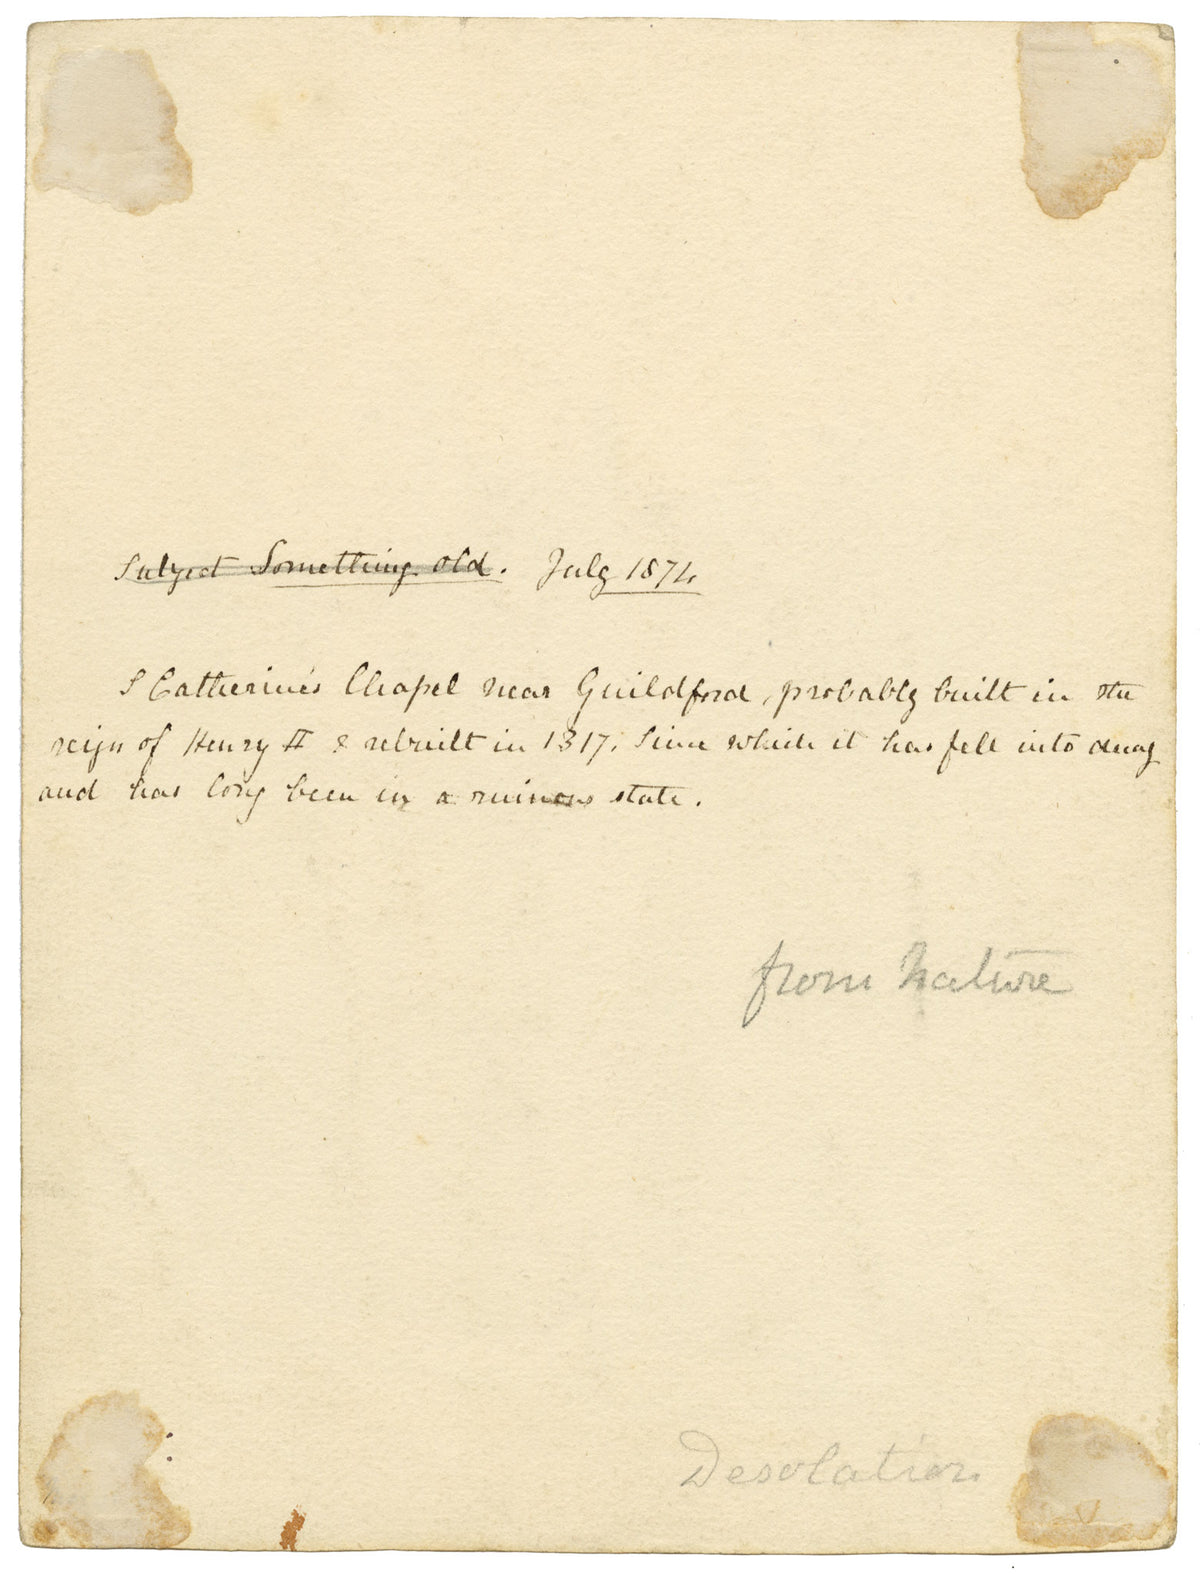 Subject Something old. July 1874
S Catherine's Chapel near Guildford, probably built in the
reign of Henry II & rebuilt in 1317. Since which it has fell into decay
and has long been in a ruinous state.
from Nature
Desolation